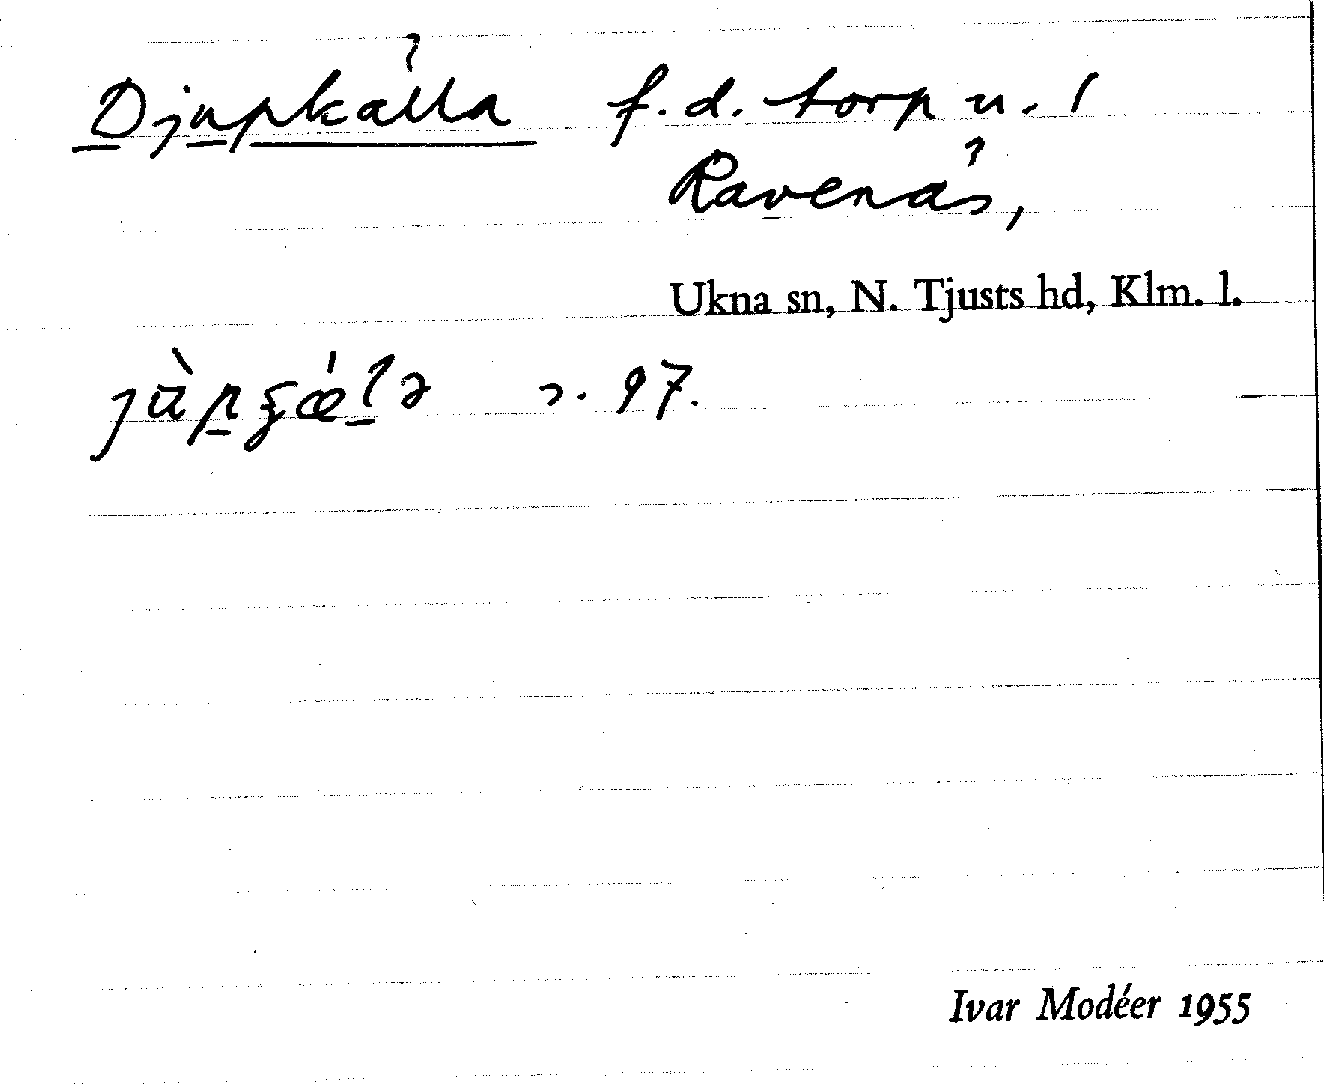 Djupkälla f.d. torp u. /
Ravenäs,
Ukna sn, N. Tjusts hd, Klm. l.
97.
Ivar Modéer 1955